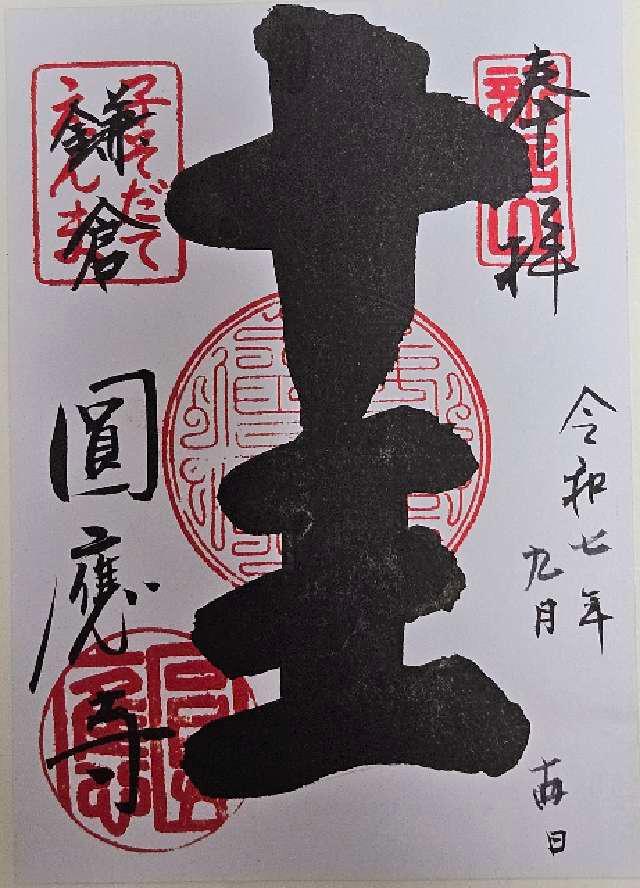 奉拝
新居山
令和七年
九月
日
十王
子そだて
えんま
鎌倉
圓應寺